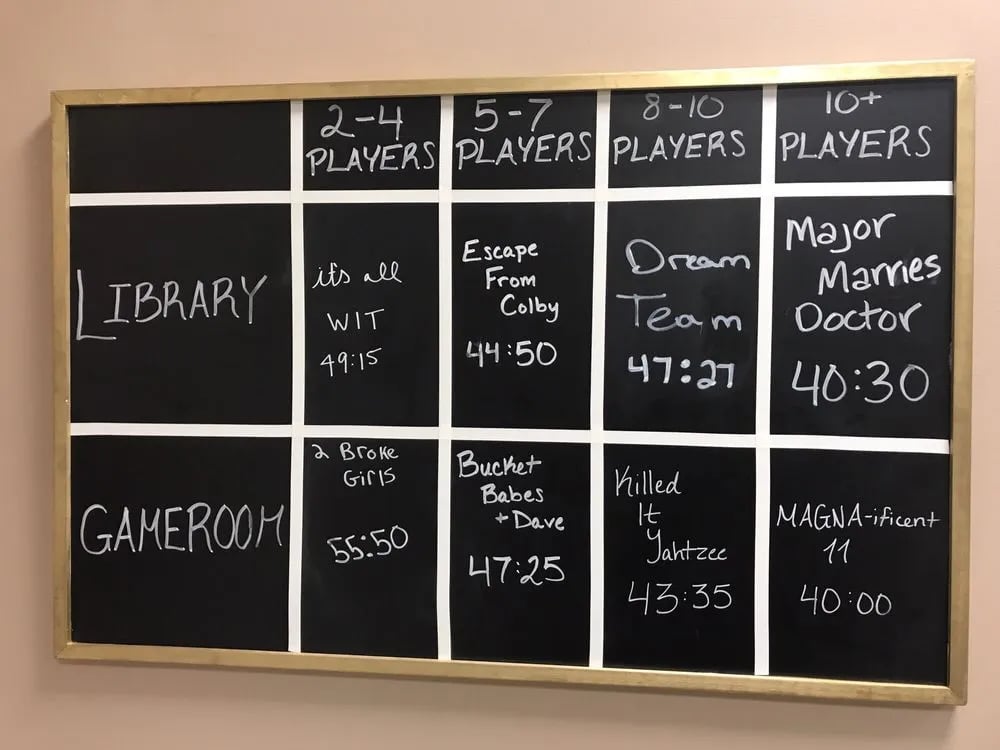 2-4
PLAYERS
5-7
PLAYERS
8-10
PLAYERS
10+
PLAYERS
LIBRARY
it's all
WIT
49:15
Escape
From
Colby
44:50
Dream
Team
47:27
Major
Marries
Doctor
40:30
GAMEROOM
2 Broke
Girls
55:50
Bucket
Babes
+ Dave
47:25
Killed
It
Yahtzee
43:35
MAGNA-ificent
11
40:00